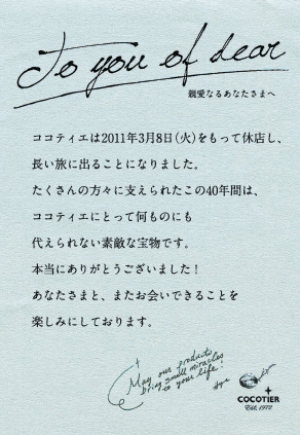 To you of dear
親愛なるあなたさまへ
ココティエは2011年3月8日(火)をもって休店し、
長い旅に出ることになりました。
たくさんの方々に支えられたこの40年間は、
ココティエにとって何ものにも
代えられない素敵な宝物です。
本当にありがとうございました！
あなたさまと、またお会いできることを
楽しみにしております。
May our products
bring small miracles
to your life!
COCOTIER
Est. 1972